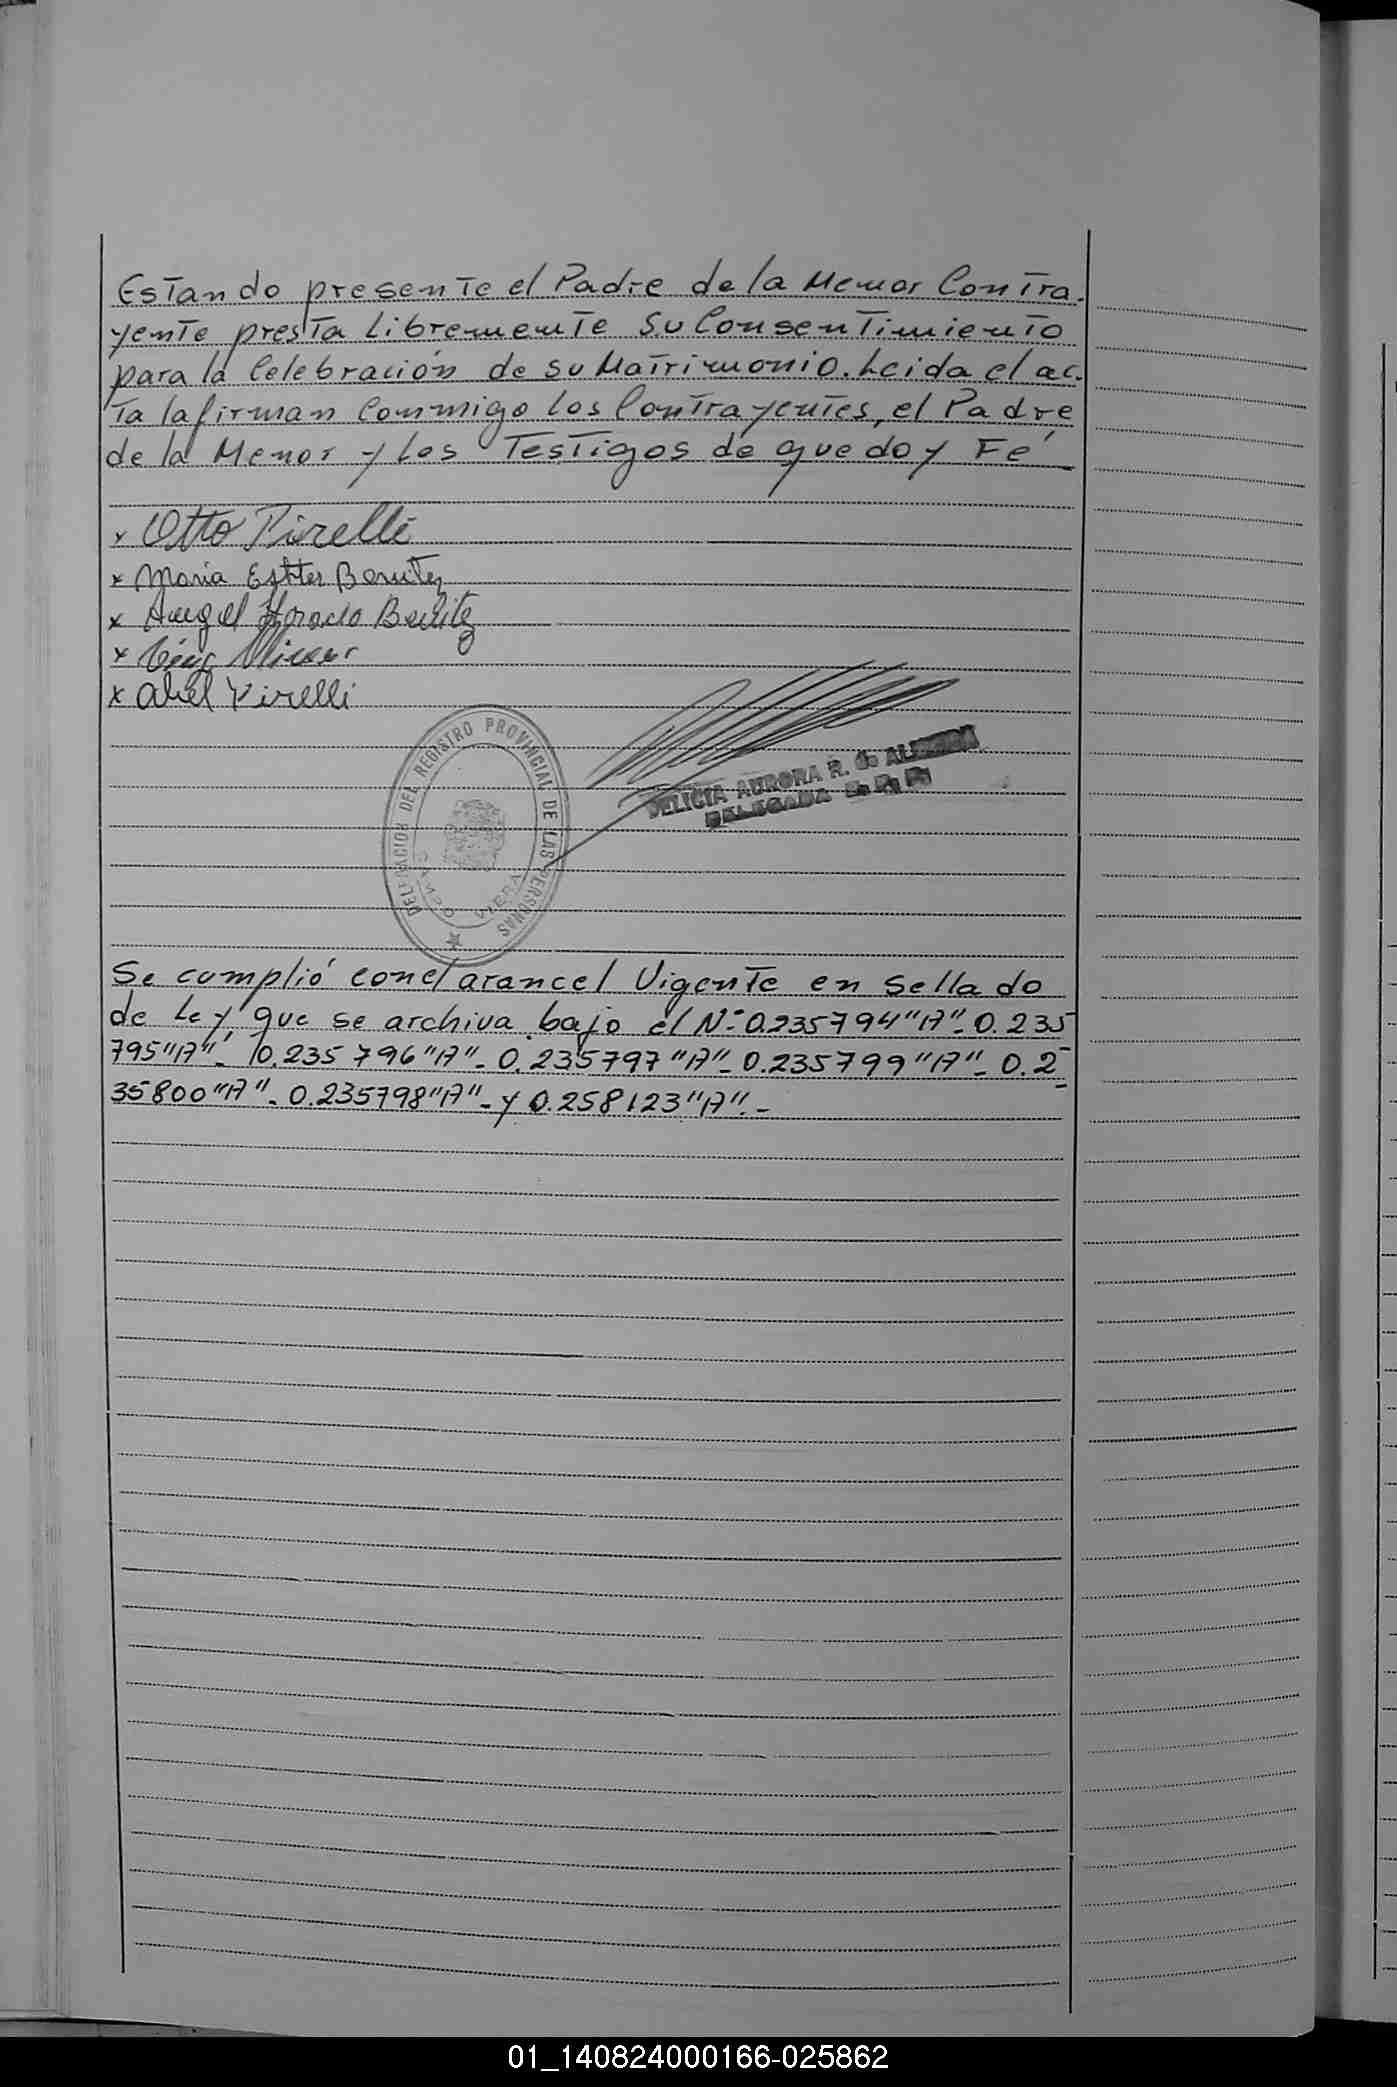 Estando presente el Padre de la Menor Contra-
yente presta Libremente Su Consentimiento
para la Celebración de su Matrimonio. Leida el ac-
ta la firman Conmigo los Contrayentes, el Padre
de la Menor y Los Testigos de que doy Fé
x Otto Pirelli
x Maria Esther Benitez
x Angel Horacio Benitez
x
x Abel Pirelli
DELEGACION DEL REGISTRO PROVINCIAL DE LAS PERSONAS
CAMPO VIERA
DELICIA AURORA R. G. ALMEIDA
DELEGADA R. P. P.
Se cumplió con el arancel Vigente en Sellado
de Ley, que se archiva bajo el Nº 0.235794"A"- 0.235
795"A"- 0.235796"A"- 0.235797"A"- 0.235799"A"- 0.2-
35800"A"- 0.235798"A"- y 0.258123"A".-
01_140824000166-025862